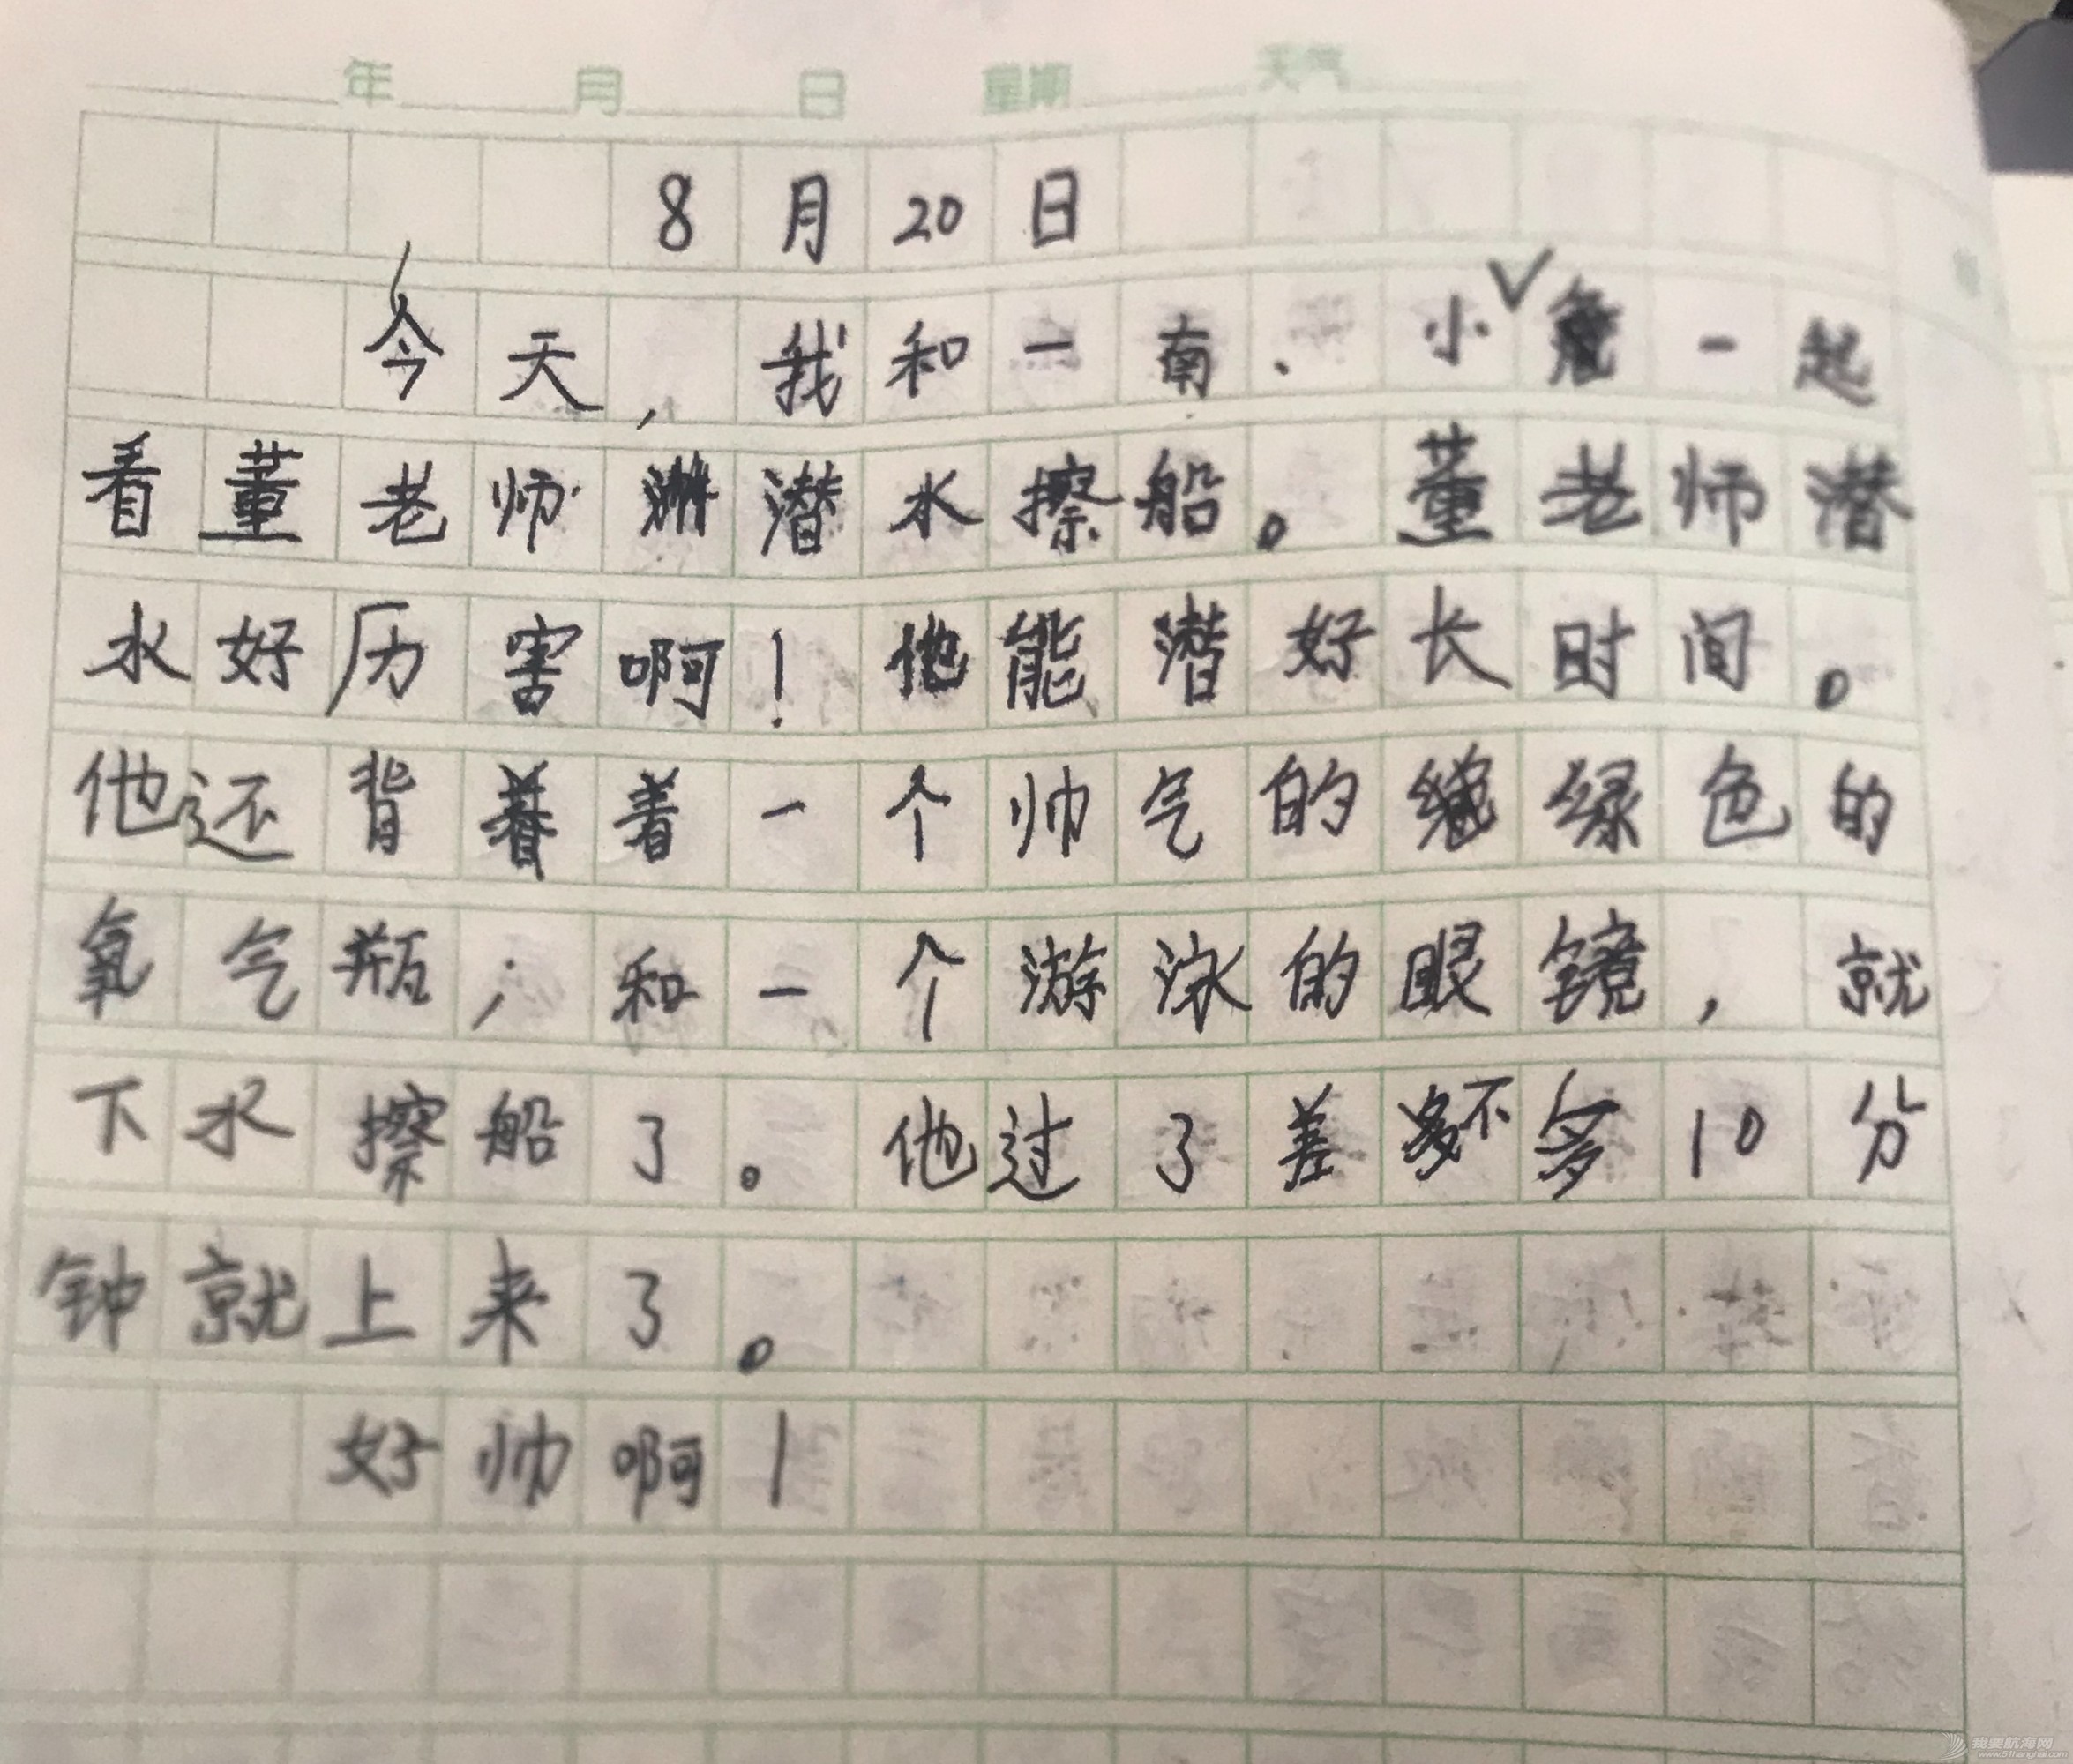 年 月 日 星期 天气
8月20日
今天，我和一南、小 一起
看董老师潜水擦船。董老师潜
水好历害啊！他能潜好长时间。
他还背着一个帅气的绿色的
氧气瓶，和一个游泳的眼镜，就
下水擦船了。他过了差不多10分
钟就上来了。
好帅啊！
我要航海网
www.51hanghai.com